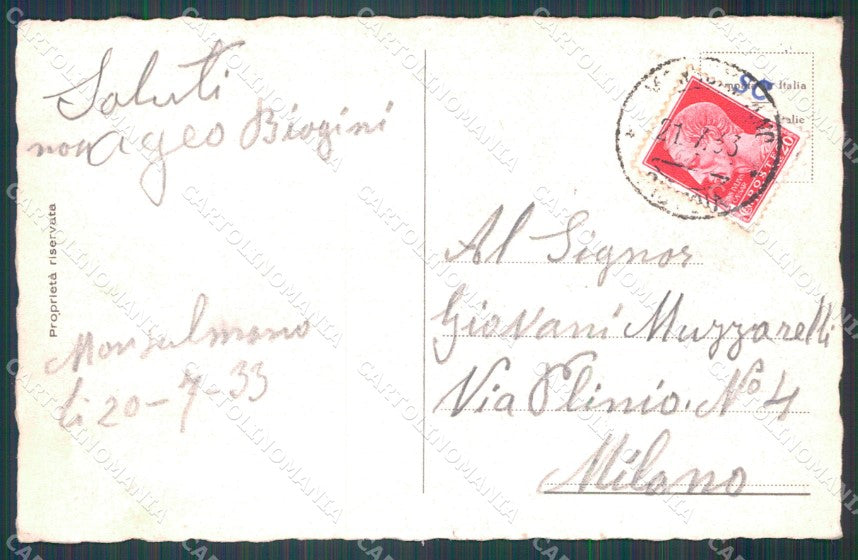 Saluti
Ageo Biogini
Proprietà riservata
Monsulmano
li 20-7-33
80
Italia
21.7.33
20
Al Signor
Giovani Muzzarelli
Via Plinio. No 4
Milano
CARTOLINOMANIA